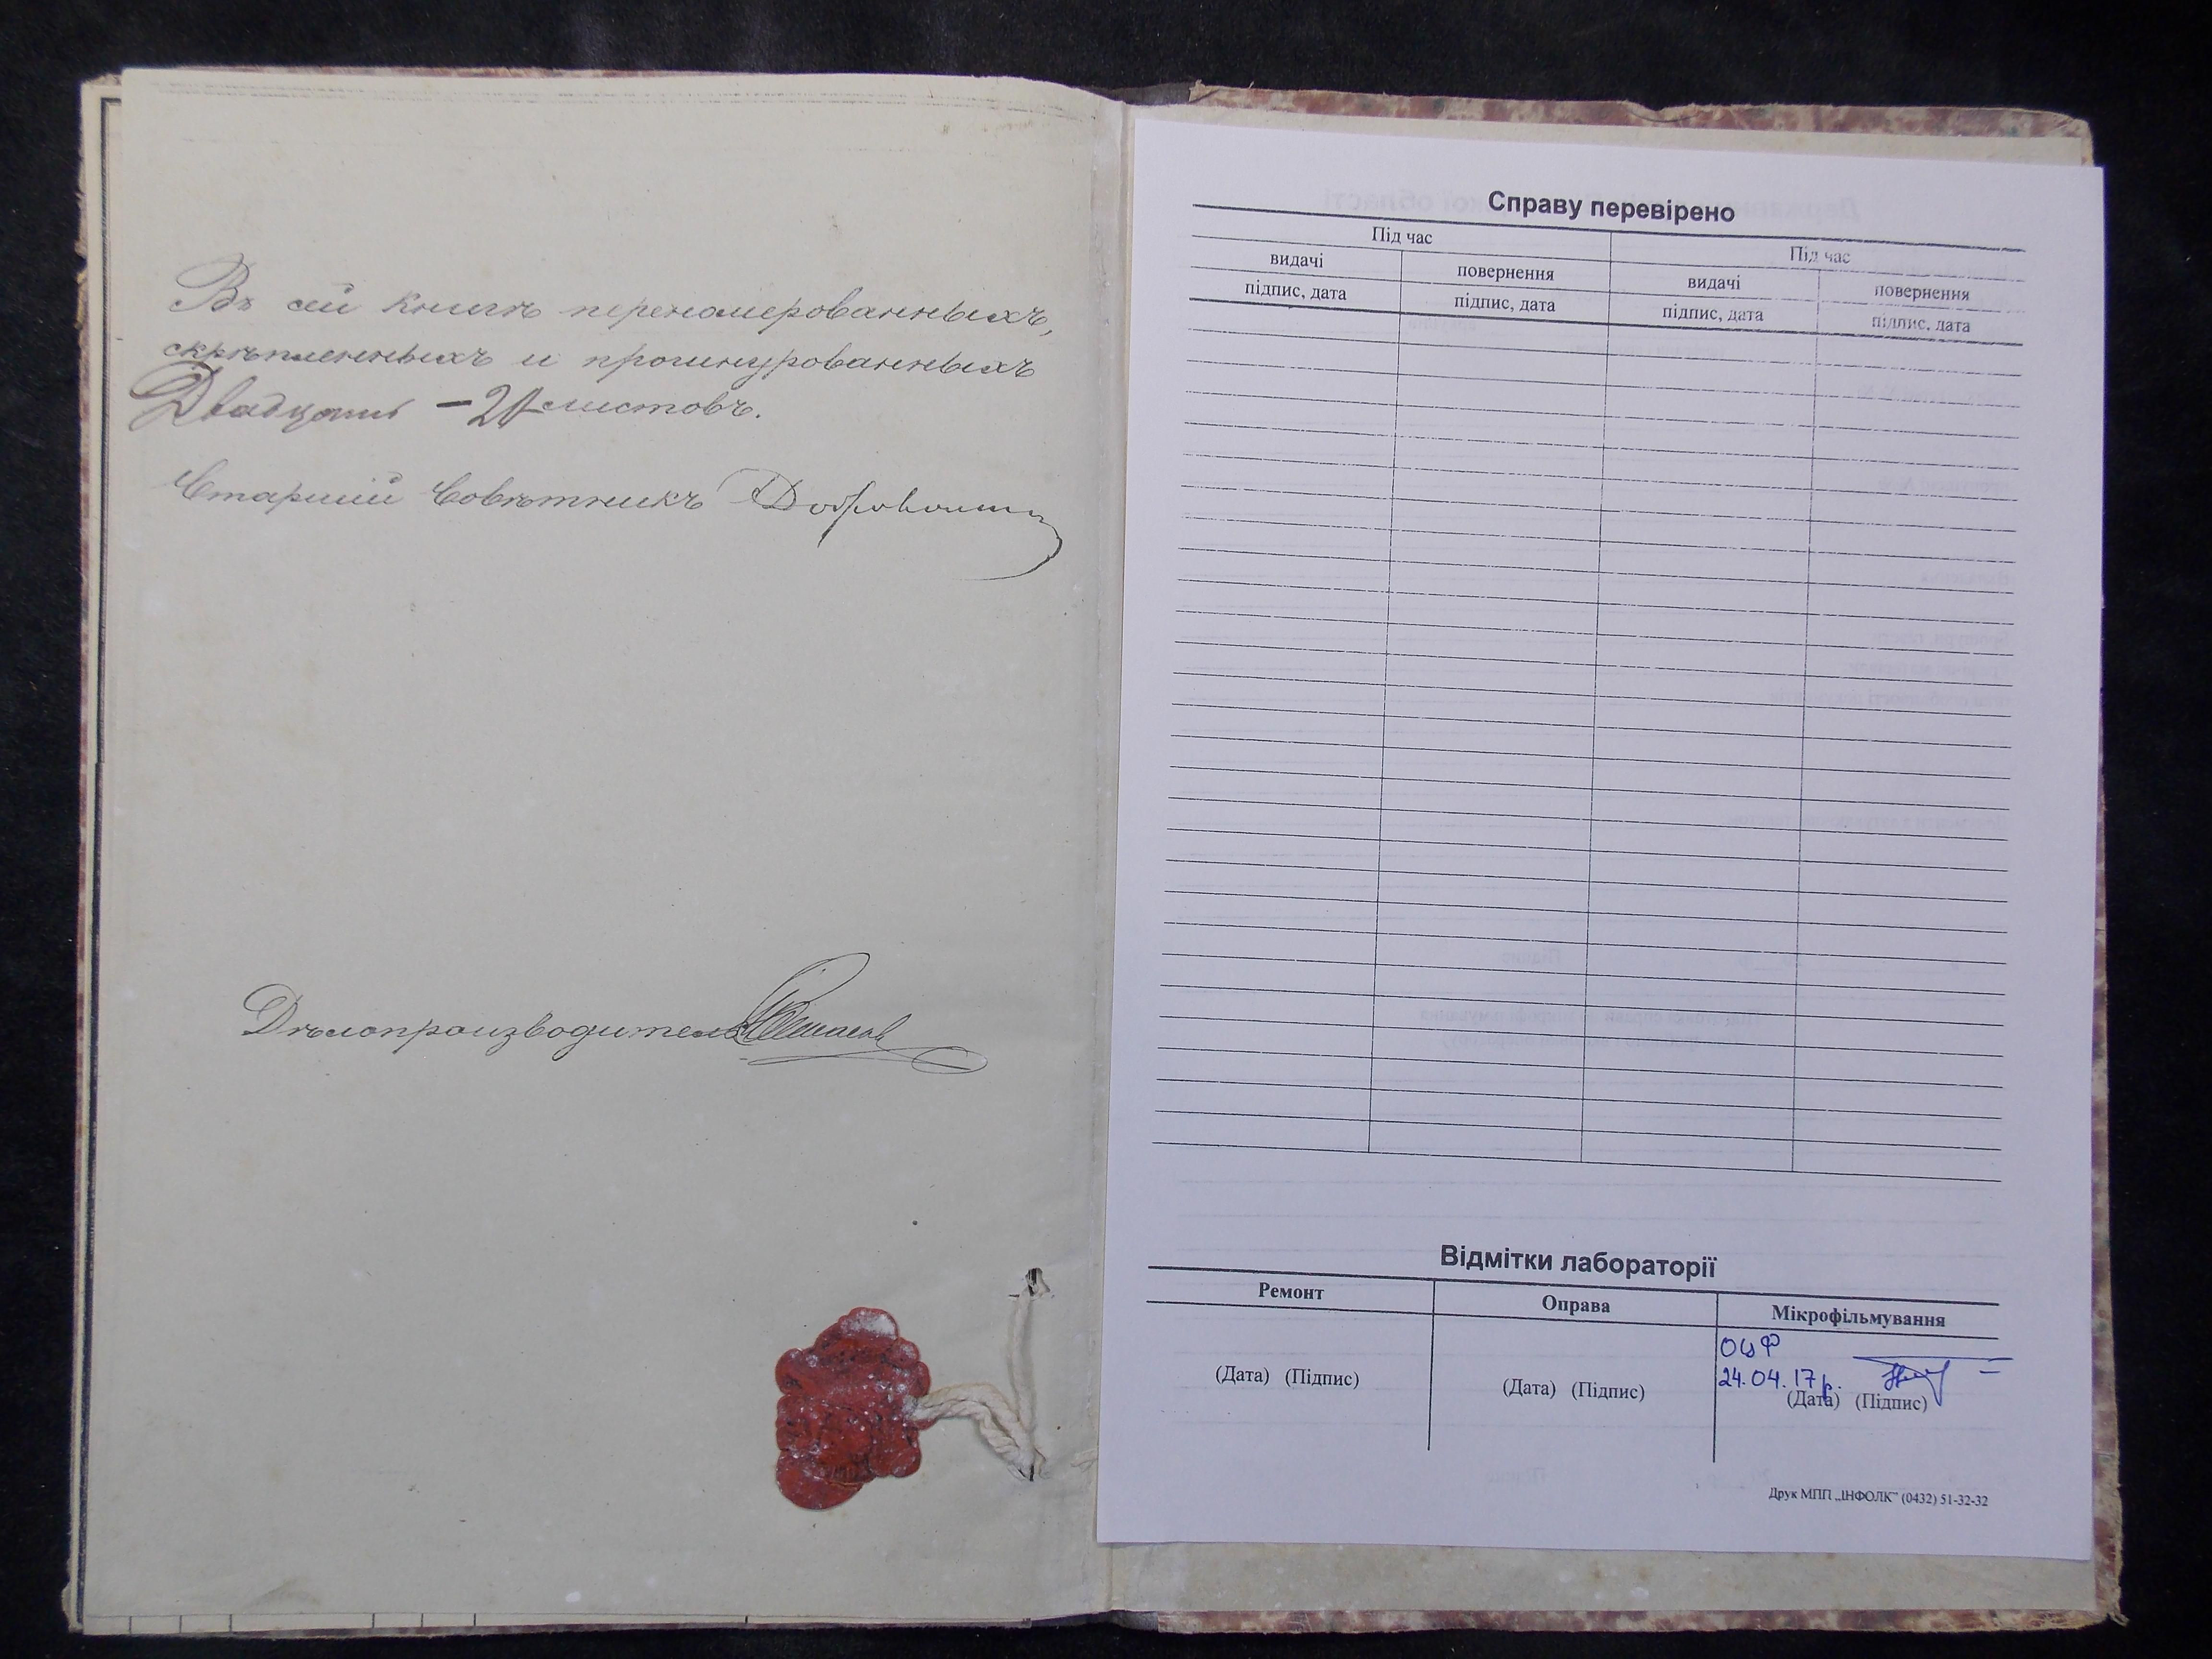 Въ сей книгѣ перенумерованныхъ,
скрѣпленныхъ и прошнурованныхъ
Двадцать - 20 листовъ.
Старшій Совѣтникъ
Дѣлопроизводитель
Справу перевірено
Під час Під час
видачі повернення видачі повернення
підпис, дата підпис, дата підпис, дата підпис, дата
Відмітки лабораторії
Ремонт Оправа Мікрофільмування
ОЦФ
24.04.17р.
(Дата) (Підпис) (Дата) (Підпис) (Дата) (Підпис)
Друк МПП „ІНФОЛК” (0432) 51-32-32